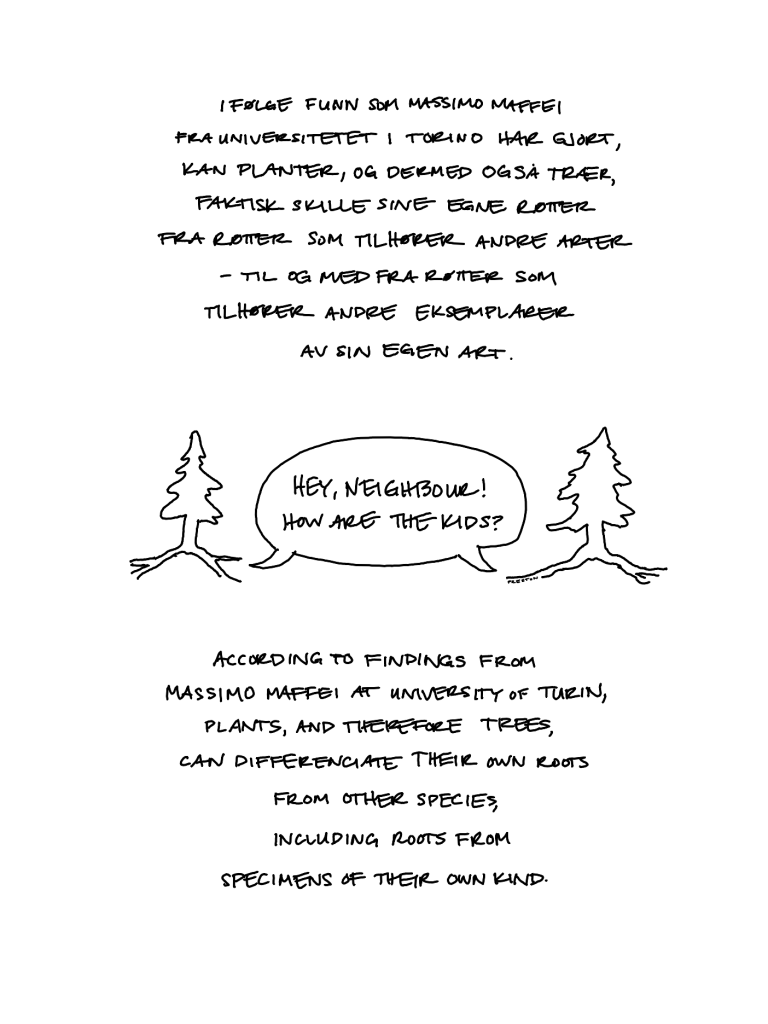 I FØLGE FUNN SOM MASSIMO MAFFEI
FRA UNIVERSITETET I TORINO HAR GJORT,
KAN PLANTER, OG DERMED OGSÅ TRÆR,
FAKTISK SKILLE SINE EGNE RØTTER
FRA RØTTER SOM TILHØRER ANDRE ARTER
- TIL OG MED FRA RØTTER SOM
TILHØRER ANDRE EKSEMPLARER
AV SIN EGEN ART.
HEY, NEIGHBOUR!
HOW ARE THE KIDS?
PRESTON
ACCORDING TO FINDINGS FROM
MASSIMO MAFFEI AT UNIVERSITY OF TURIN,
PLANTS, AND THEREFORE TREES,
CAN DIFFERENCIATE THEIR OWN ROOTS
FROM OTHER SPECIES,
INCLUDING ROOTS FROM
SPECIMENS OF THEIR OWN KIND.